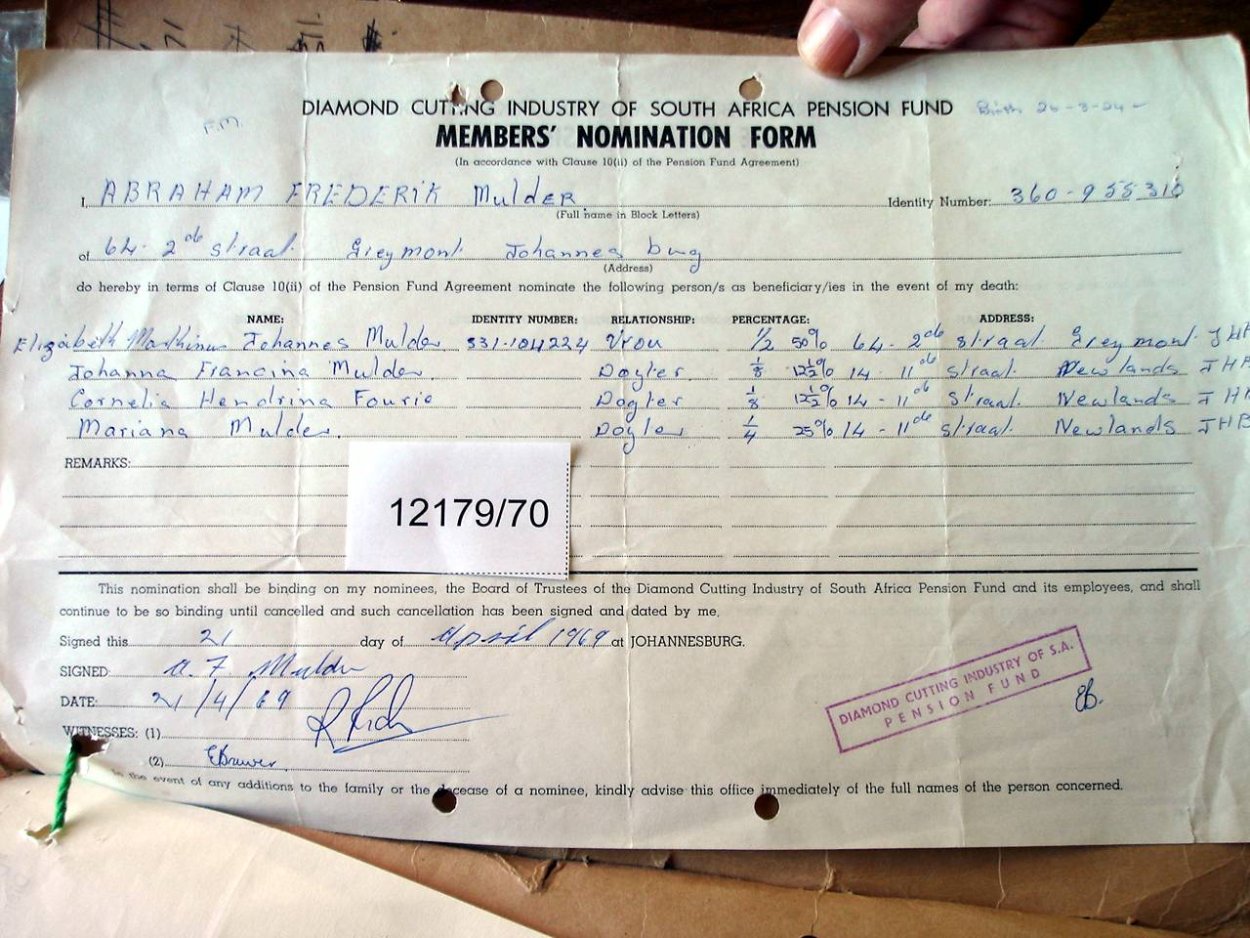 DIAMOND CUTTING INDUSTRY OF SOUTH AFRICA PENSION FUND Birth 26-8-24
F.M.
MEMBERS' NOMINATION FORM
(In accordance with Clause 10(ii) of the Pension Fund Agreement)
I, ABRAHAM FREDERIK MulDER. Identity Number: 360-955310
(Full name in Block Letters)
of 64. 2de straat. Greymont. Johannesburg
(Address)
do hereby in terms of Clause 10(ii) of the Pension Fund Agreement nominate the following person/s as beneficiary/ies in the event of my death:
NAME: IDENTITY NUMBER: RELATIONSHIP: PERCENTAGE: ADDRESS:
Elizabeth Marthinus Johannes Mulder 331-104224 Vrou 1/2 50% 64-2de straat Greymont JHB
Johanna Francina Mulder. Dogter. 1/8 12½% 14-11de straat. Newlands JHB
Cornelia Hendrina Fourie Dogter 1/8 12½% 14-11de straat. Newlands JHB
Mariana Mulder. Dogter 1/4 25% 14-11de straat. Newlands JHB
REMARKS:
12179/70
This nomination shall be binding on my nominees, the Board of Trustees of the Diamond Cutting Industry of South Africa Pension Fund and its employees, and shall
continue to be so binding until cancelled and such cancellation has been signed and dated by me.
Signed this 21 day of April 1969 at JOHANNESBURG.
SIGNED: A. F. Mulder
DATE: 21/4/69
WITNESSES: (1)
(2) EBrower.
DIAMOND CUTTING INDUSTRY OF S.A.
PENSION FUND
EB.
In the event of any additions to the family or the decease of a nominee, kindly advise this office immediately of the full names of the person concerned.